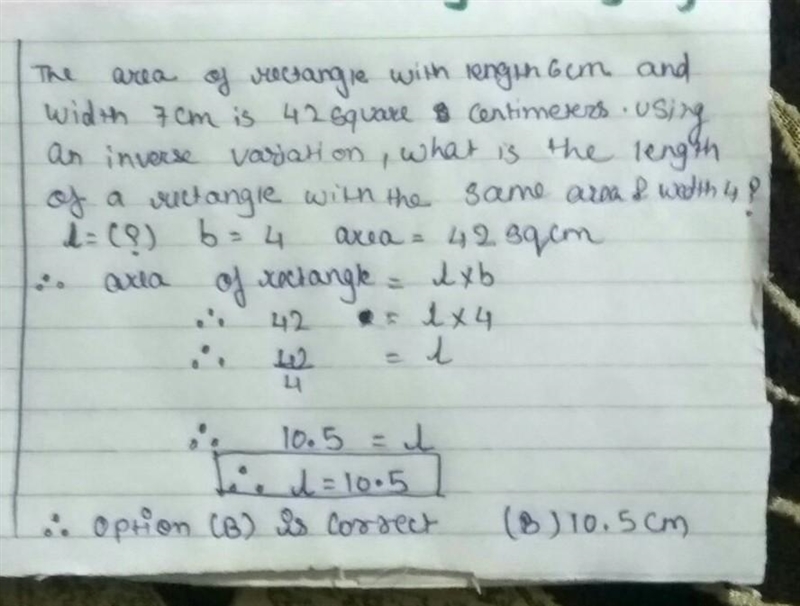 The area of rectangle with length 6cm and
width 7cm is 42 square centimeters. using
an inverse variation, what is the length
of a rectangle with the same area & width 4?
l = (?) b = 4 area = 42 sqcm
∴ area of rectangle = l × b
∴ 42 = l × 4
∴ 42/4 = l
∴ 10.5 = l
∴ l = 10.5
∴ option (B) is correct (B) 10.5 cm